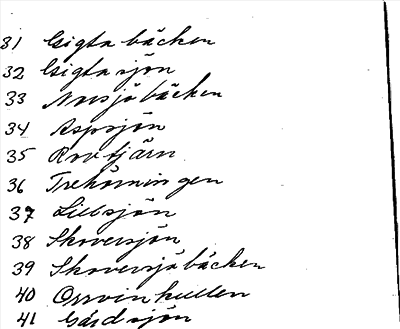 31 Gigtabäcken
32 Gigtasjön
33 Norsjöbäcken
34 Aspsjön
35 Rovtjärn
36 Trehörningen
37 Lillsjön
38 Skoversjön
39 Skoversjöbäcken
40 Orrvinkullen
41 Gårdsjön